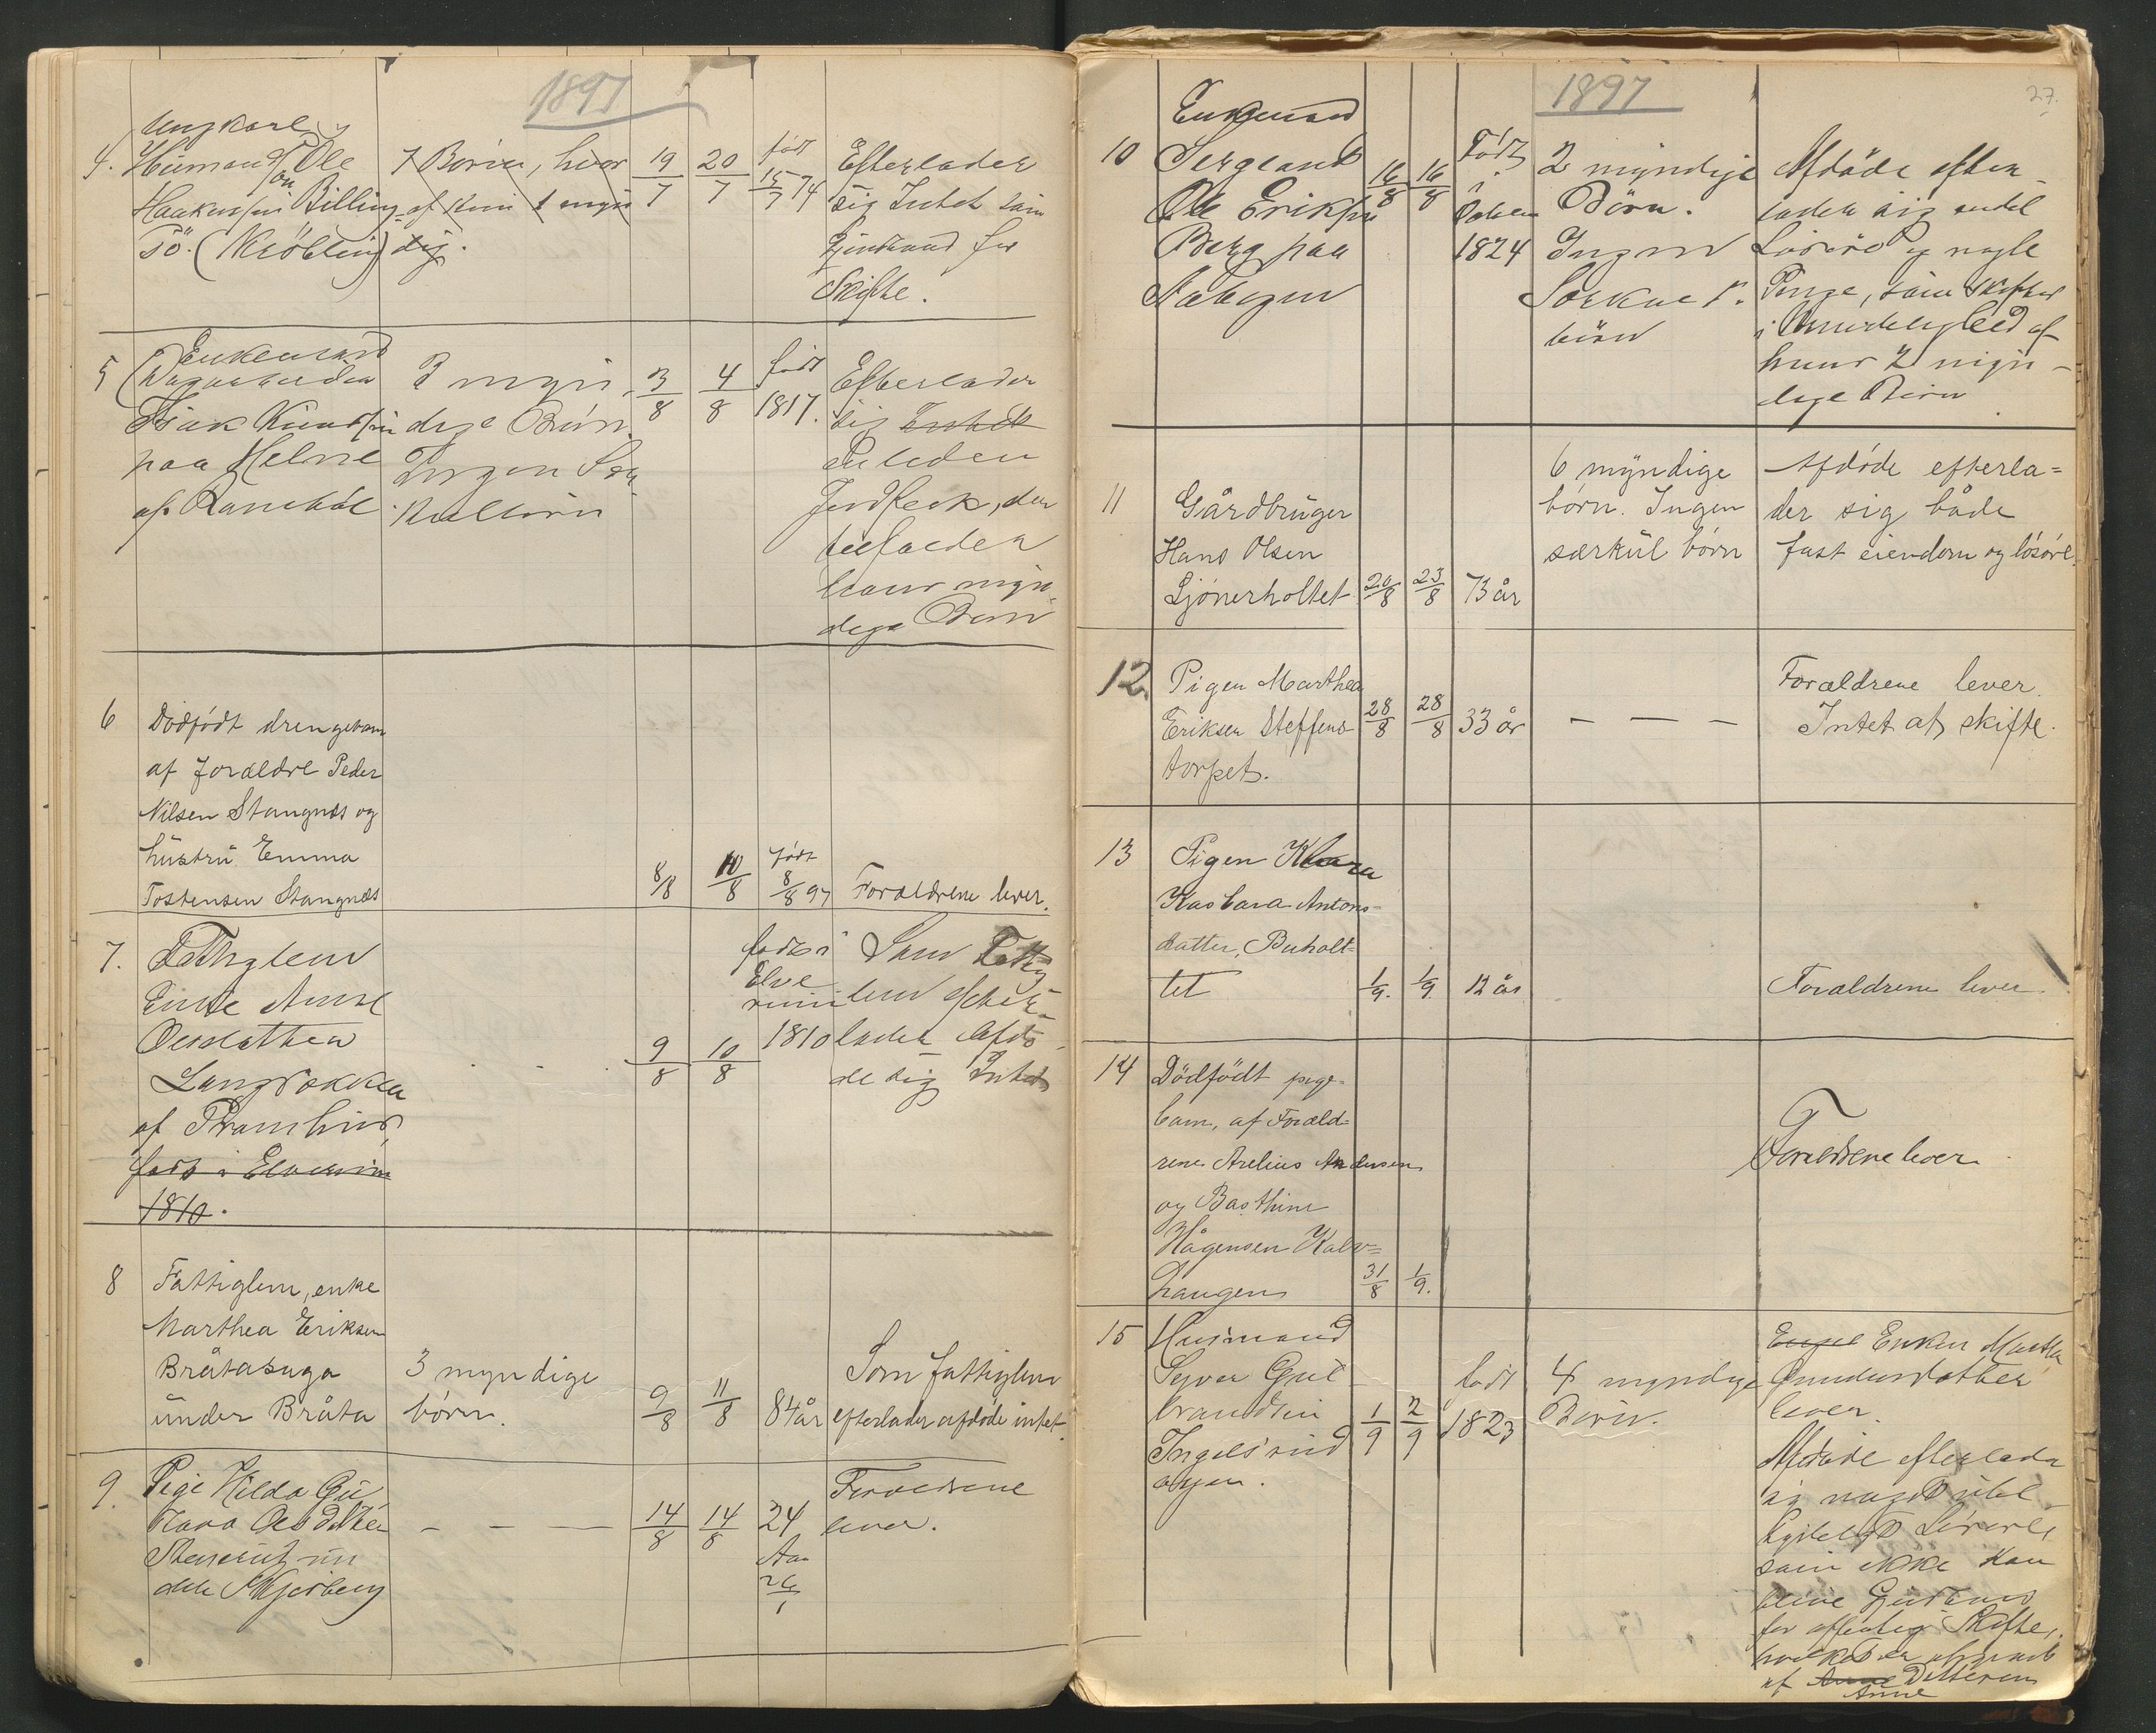 1897
4. Ungkarl
Husmand Ole
Haakensen Billing
sö. (Kröbling)
7 Börn, hvor
af kun 1 myn
dig.
19/7
20/7
født
15/7 74
Efterlader
sig Intet som
Gjenstand for
Skifte.
5 Enkemand
Dagarbeider
Isak Knudsen
paa Helne
3 myn
dige Börn
Ingen Sær
kulbörn
3/8
4/8
født
1817.
Efterlader
sig Intet
en liden
Jordflæk, der
tilfalder
hans myn-
dige Börn
6 Dödfödt drengebarn
af forældre Peder
Nilsen Stangnæs og
hüstrü Emma
Tostensen Stangnæs
8/8
10/8
født
8/8 97
Forældrene lever.
7. Fattiglem
Enke Anne
Olsdatter
Langbakken
af Pramhus,
født i Elverum
1810.
9/8
10/8
født i
Elve
rum
1810
Som Fattig
lem efter-
lader Afdö
de sig Intet
8 Fattiglem, enke
Marthea Eriksen
Bråtasuga
ünder Bråta
3 myndige
börn.
9/8
11/8
84 år
Som fattiglem
efterlader afdöde intet.
9. Pige Hilda Gü
stava Olsdatter
un
der Skjerberg
— — —
14/8
14/8
24
Aar
26/1
Forældrene
lever.
1897
27.
10 Enkemand
Sergeant
Ole Eriksen
Berg paa
16/8
16/8
Födt
i
1824
2 myndige
Börn.
Ingen
Særkul
börn
Afdöde efter-
lader sig endel
Lösöre og nogle
Penge, som skiftes
i Mindelighed af
hans 2 myn-
dige Börn
11 Gårdbrüger
Hans Olsen
Sjönerholtet
20/8
23/8
73 år
6 myndige
börn. Ingen
særkül börn
Afdöde efterla=
der sig både
fast eiendom og lösöre.
12. Pigen Marthea
Eriksen Steffens-
torpet.
28/8
28/8
33 år
— — —
Forældrene lever.
Intet at skifte.
13 Pigen Klara
Kasbara Antons-
datter, Buholt=
tet
1/9.
1/9
12 år
Forældrene lever
14 Dödfödt pige-
barn, af Foræld=
rene Arelius Andersen
og Basthine
Hågensen Kalv=
haugen
31/8
1/9.
Forældrene lever
15 Husmand
Syver Gul
brandsen
Ingelsrud
1/9
2/9
født
1823
4 myndige
Börn.
Enken Marthe
Gundersdatter
lever.
Afdöde efterlader
sig noget ube
tydeligt Lösöre,
som ikke kan
blive Gjenstand
for offentlig Skifte,
hvilket er opgivet
af Anne Datteren
Anne